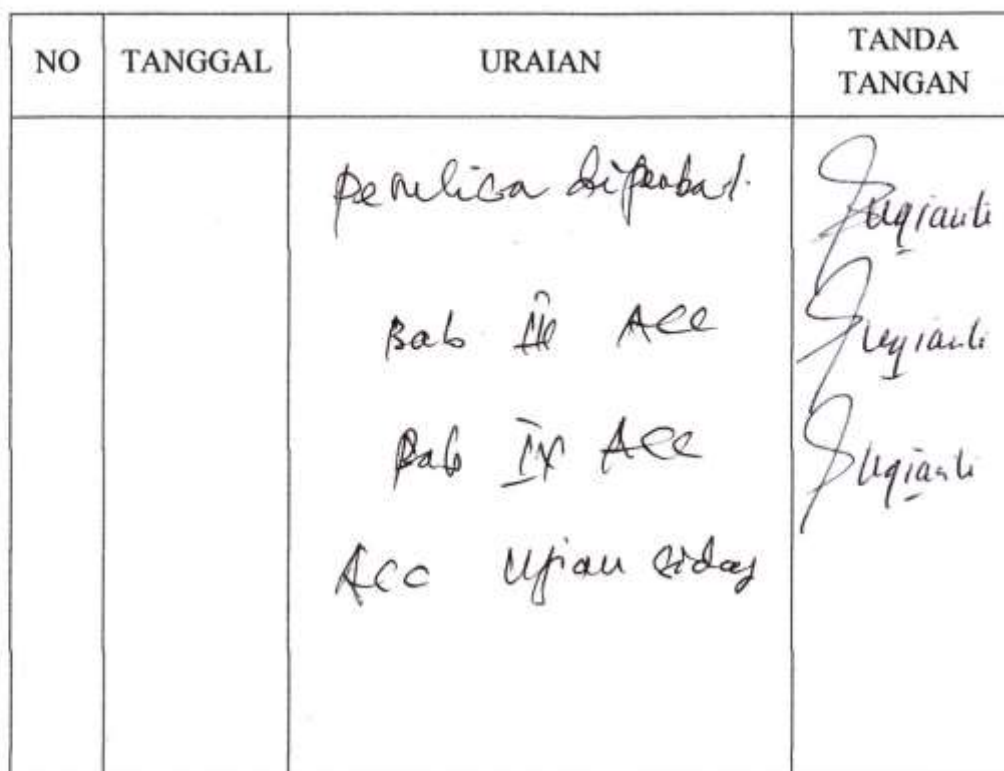 NO TANGGAL URAIAN TANDA TANGAN
Sugianti
Bab III ACC Sugianti
Bab IV ACC Sugianti
Acc Ujian sidang